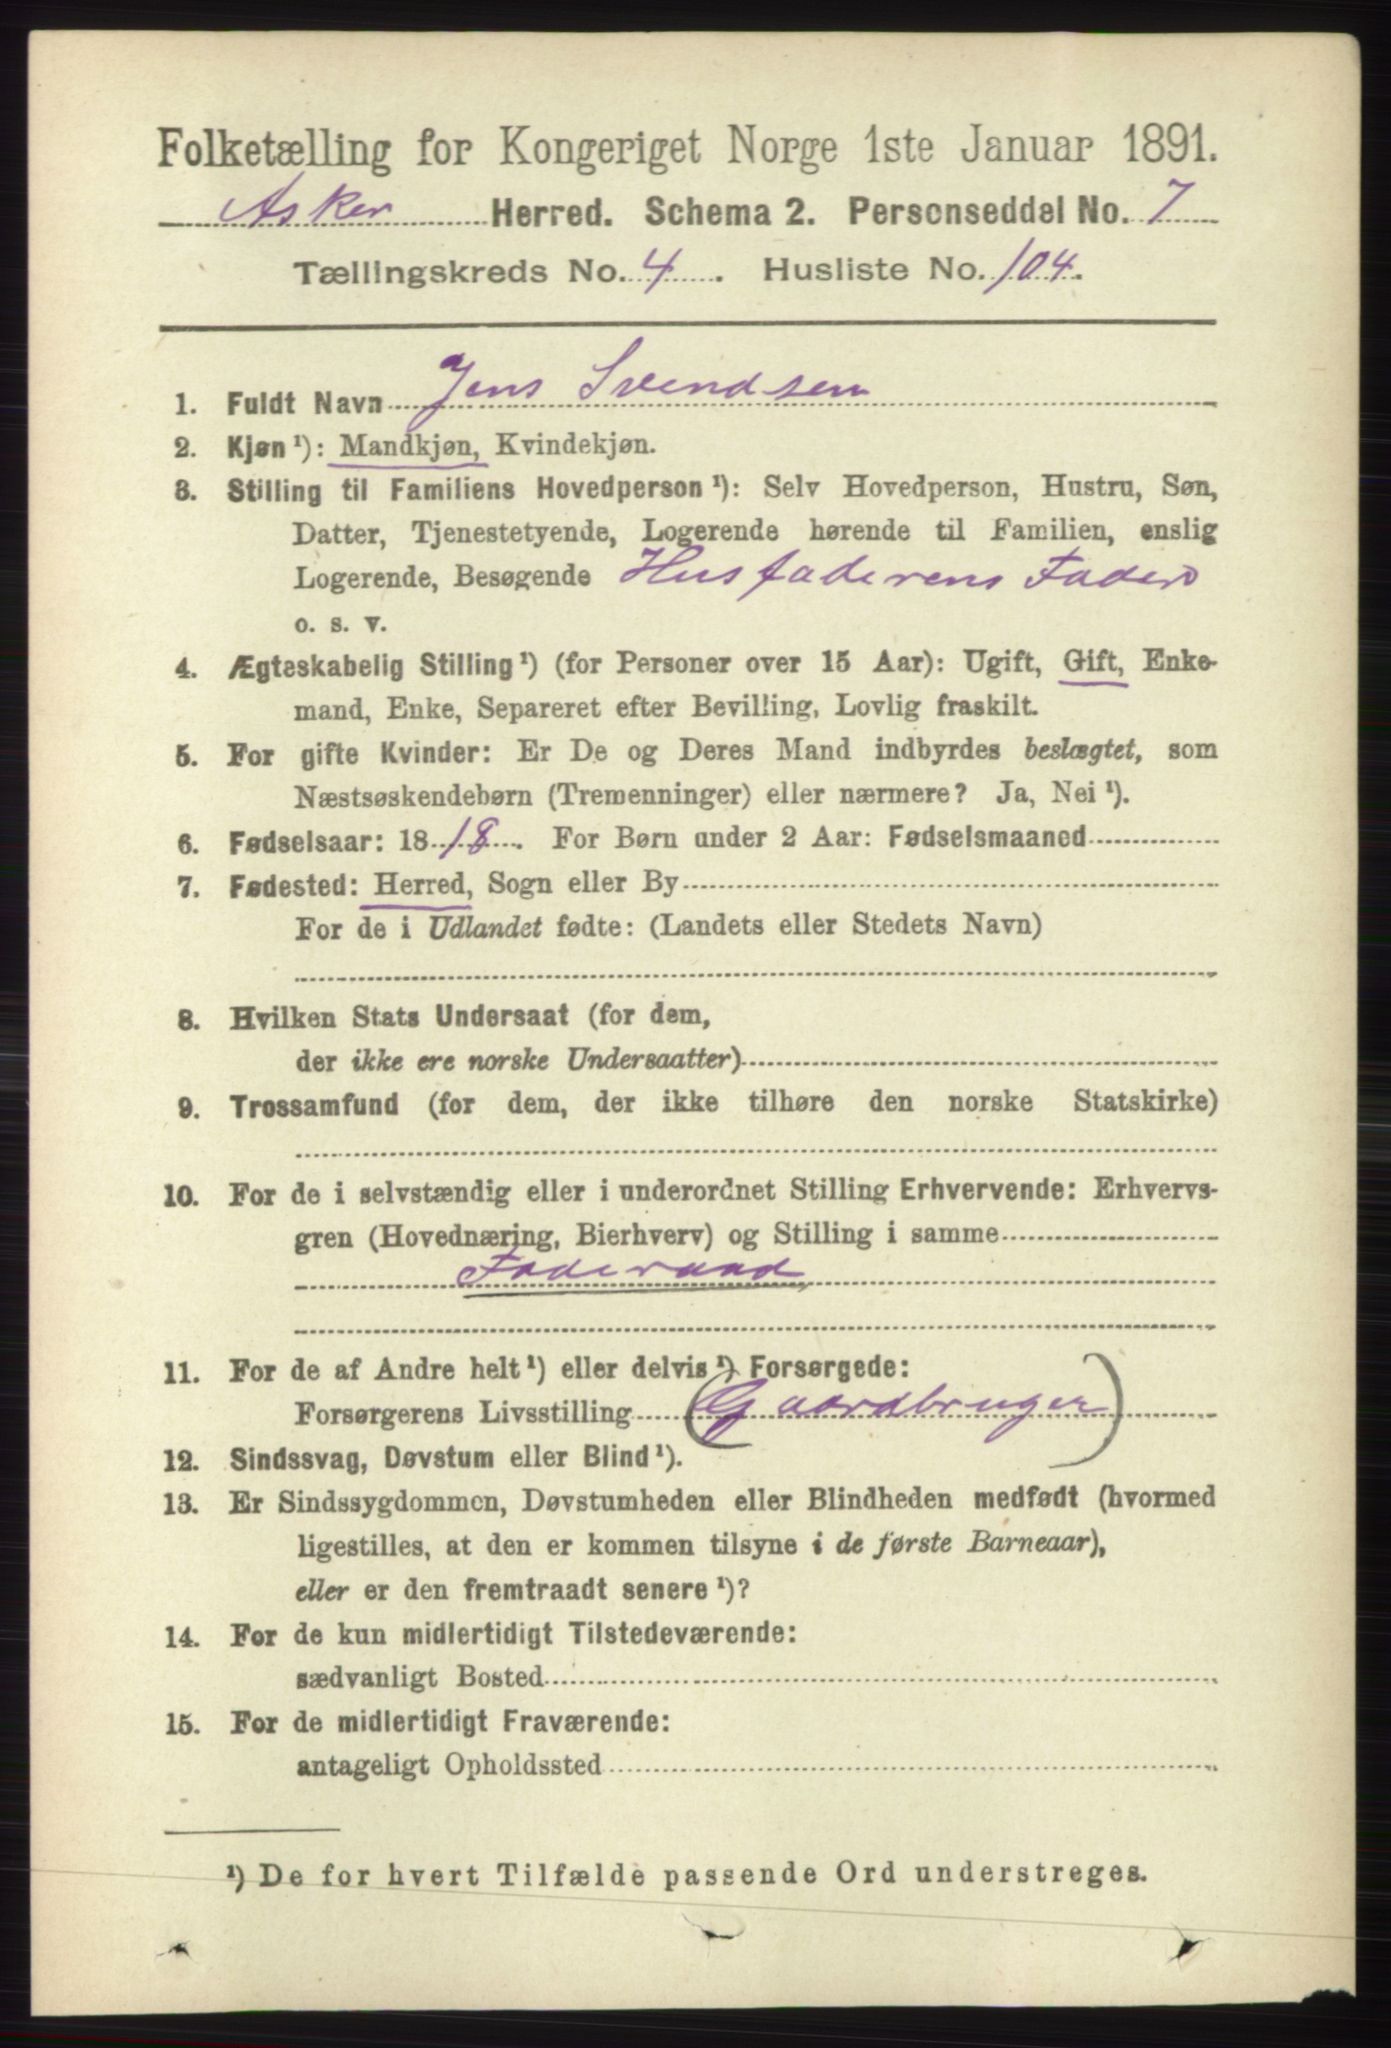 Folketælling for Kongeriget Norge 1ste Januar 1891.
Asker Herred. Schema 2. Personseddel No. 7
Tællingskreds No. 4. Husliste No. 104.
1. Fuldt Navn Jens Svendsen
2. Kjøn ¹): Mandkjøn, Kvindekjøn.
3. Stilling til Familiens Hovedperson ¹): Selv Hovedperson, Hustru, Søn,
Datter, Tjenestetyende, Logerende hørende til Familien, enslig
Logerende, Besøgende Husfaderens Fader
o. s. v.
4. Ægteskabelig Stilling ¹) (for Personer over 15 Aar): Ugift, Gift, Enke-
mand, Enke, Separeret efter Bevilling, Lovlig fraskilt.
5. For gifte Kvinder: Er De og Deres Mand indbyrdes beslægtet, som
Næstsøskendebørn (Tremenninger) eller nærmere? Ja, Nei ¹).
6. Fødselsaar: 18 18. For Børn under 2 Aar: Fødselsmaaned
7. Fødested: Herred, Sogn eller By
For de i Udlandet fødte: (Landets eller Stedets Navn)
8. Hvilken Stats Undersaat (for dem,
der ikke ere norske Undersaatter)
9. Trossamfund (for dem, der ikke tilhøre den norske Statskirke)
10. For de i selvstændig eller i underordnet Stilling Erhvervende: Erhvervs-
gren (Hovednæring, Bierhverv) og Stilling i samme
Foderaad
11. For de af Andre helt ¹) eller delvis ¹) Forsørgede:
Forsørgerens Livsstilling (Gaardbruger)
12. Sindssvag, Døvstum eller Blind ¹).
13. Er Sindssygdommen, Døvstumheden eller Blindheden medfødt (hvormed
ligestilles, at den er kommen tilsyne i de første Barneaar),
eller er den fremtraadt senere ¹)?
14. For de kun midlertidigt Tilstedeværende:
sædvanligt Bosted
15. For de midlertidigt Fraværende:
antageligt Opholdssted
¹) De for hvert Tilfælde passende Ord understreges.